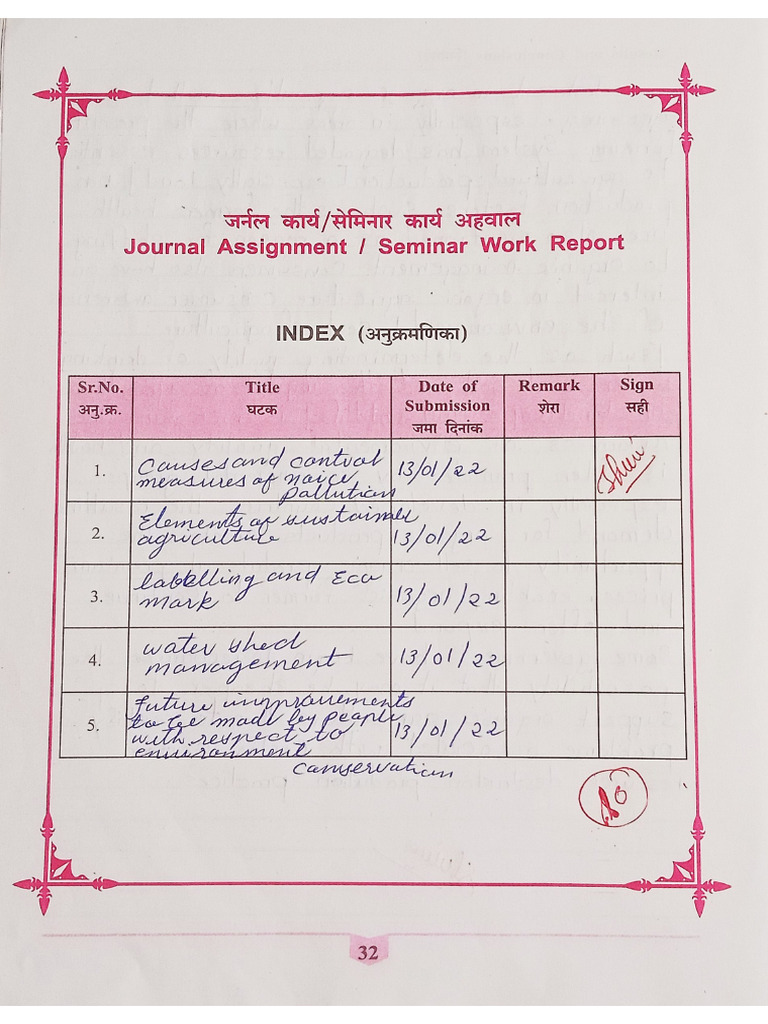 जर्नल कार्य/सेमिनार कार्य अहवाल
Journal Assignment / Seminar Work Report
INDEX (अनुक्रमणिका)
Sr.No. Title Date of Remark Sign
अनु.क्र. घटक Submission शेरा सही
जमा दिनांक
1. Causes and control 13/01/22
measures of noice
pollution
2. Elements of sustainble
agriculture 13/01/22
3. labelling and Eco
mark 13/01/22
4. water shed
management 13/01/22
5. Future inprovements
to be made by people
with respect to 13/01/22
environment
conservation
32